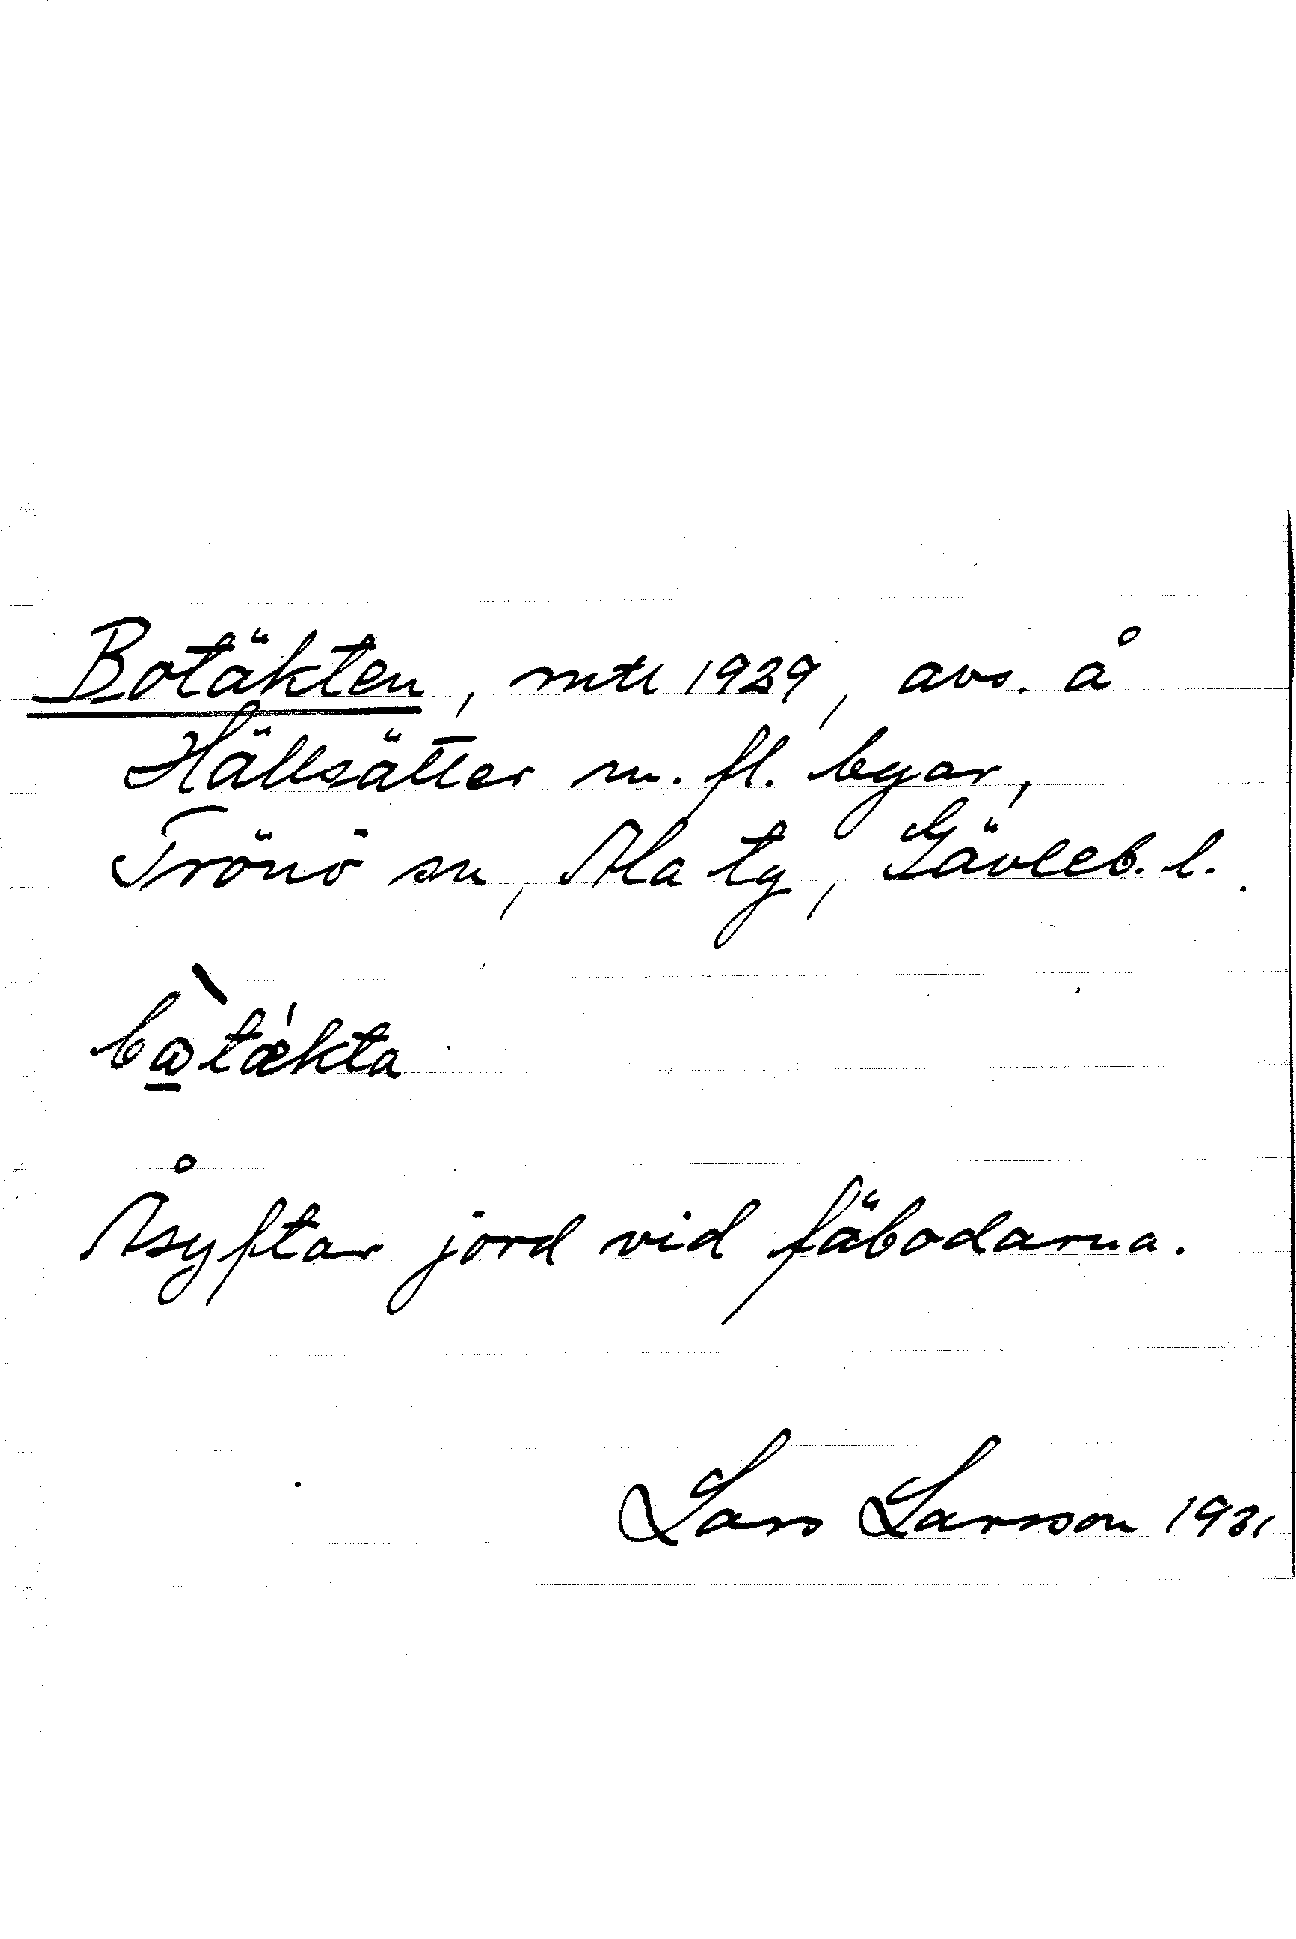 Botäkten, mtl 1939, avs. å
Hällsätter m. fl. byar,
Trönö sn, Ala tg, Gävleb. l.
bὼ̲tǽkta
Åsyftar jord vid fäbodarna.
Lars Larsson 1931